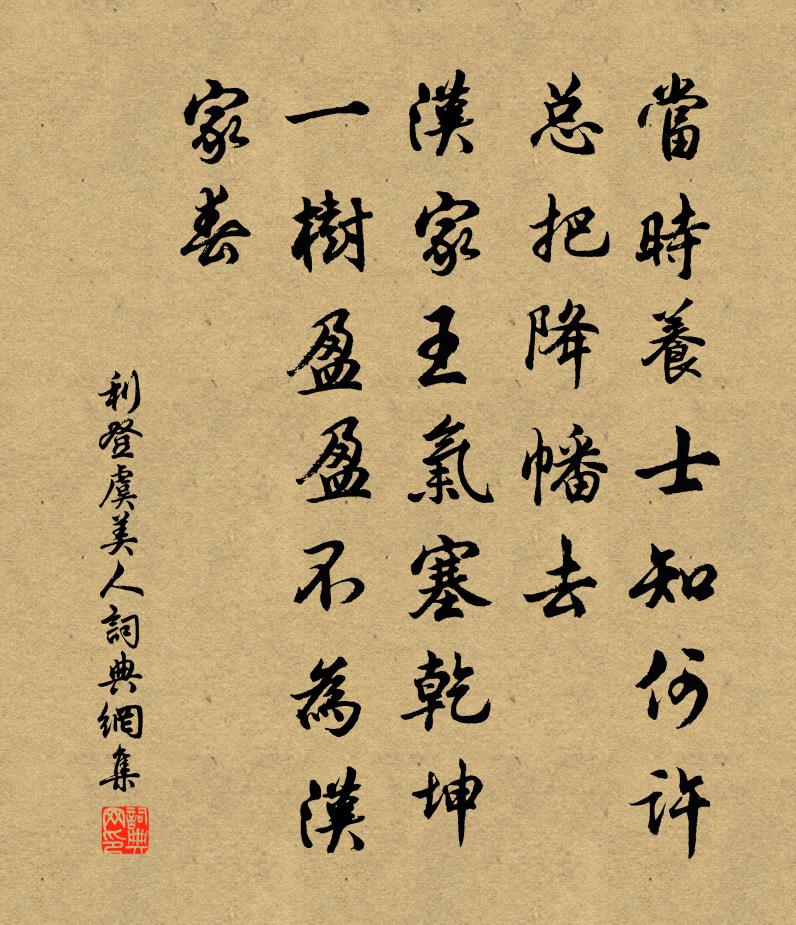 當時養士知何許
总把降幡去
漢家王氣塞乾坤
一樹盈盈不為漢
家春
利登虞美人詞典網集
詞典網印